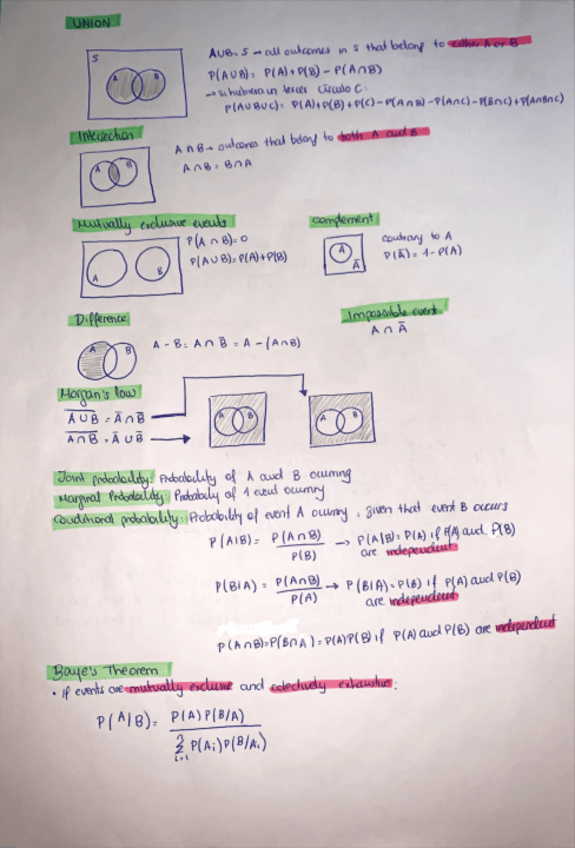 UNION
S
A
B
AUB: S → all outcomes in s that belong to either A or B
P(A∪B)= P(A)+P(B) - P(A∩B)
→ si hubiera un tercer círculo C:
P(A∪B∪C)= P(A)+P(B)+P(C)-P(A∩B)-P(A∩C)-P(B∩C)+P(A∩B∩C)
Intersection
A
B
A∩B → outcomes that belong to both A and B
A∩B = B∩A
Mutually exclusive events
A
B
P(A∩B)=0
P(A∪B)=P(A)+P(B)
complement
A
Ā
contrary to A
P(Ā)= 1-P(A)
Difference
A
B
A - B = A∩B̄ = A - (A∩B)
Impossible event
A∩Ā
Morgan's law
A̅∪̅B̅ = Ā∩B̄
A̅∩̅B̅ = Ā∪B̄
A
B
A
B
Joint probability: Probability of A and B ocurring
Marginal Probability: Probability of 1 event ocurring
Conditional probability: Probability of event A ocurring, given that event B occurs
P(A|B)= P(A∩B)/P(B) → P(A|B)=P(A) if P(A) and P(B)
are independent
P(B|A) = P(A∩B)/P(A) → P(B|A)=P(B) if P(A) and P(B)
are independent
P(A∩B)=P(B∩A)=P(A)P(B) if P(A) and P(B) are independent
Baye's Theorem
• If events are mutually exclusive and colectively exhaustive:
P(A/B)= P(A) P(B/A)
Σ i=1 P(Ai) P(B/Ai)